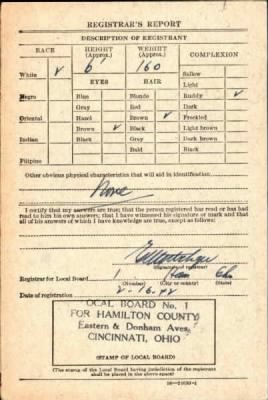 REGISTRAR'S REPORT
DESCRIPTION OF REGISTRANT
RACE HEIGHT (Approx.) WEIGHT (Approx.) COMPLEXION
White ✓ 6 160 Sallow
EYES HAIR Light
Negro Blue Blonde Ruddy ✓
Gray Red Dark
Oriental Hazel Brown ✓ Freckled
Brown ✓ Black Light brown
Indian Black Gray Dark brown
Bald Black
Filipino
Other obvious physical characteristics that will aid in identification
None
I certify that my answers are true; that the person registered has read or has had
read to him his own answers; that I have witnessed his signature or mark and that
all of his answers of which I have knowledge are true, except as follows:
(Signature of registrar)
Registrar for Local Board 1 Ham Ohio
(Number) (City or county) (State)
Date of registration 2-16-42
LOCAL BOARD No. 1
FOR HAMILTON COUNTY
Eastern & Donham Aves.
CINCINNATI, OHIO
(STAMP OF LOCAL BOARD)
(The stamp of the Local Board having jurisdiction of the registrant
shall be placed in the above space)